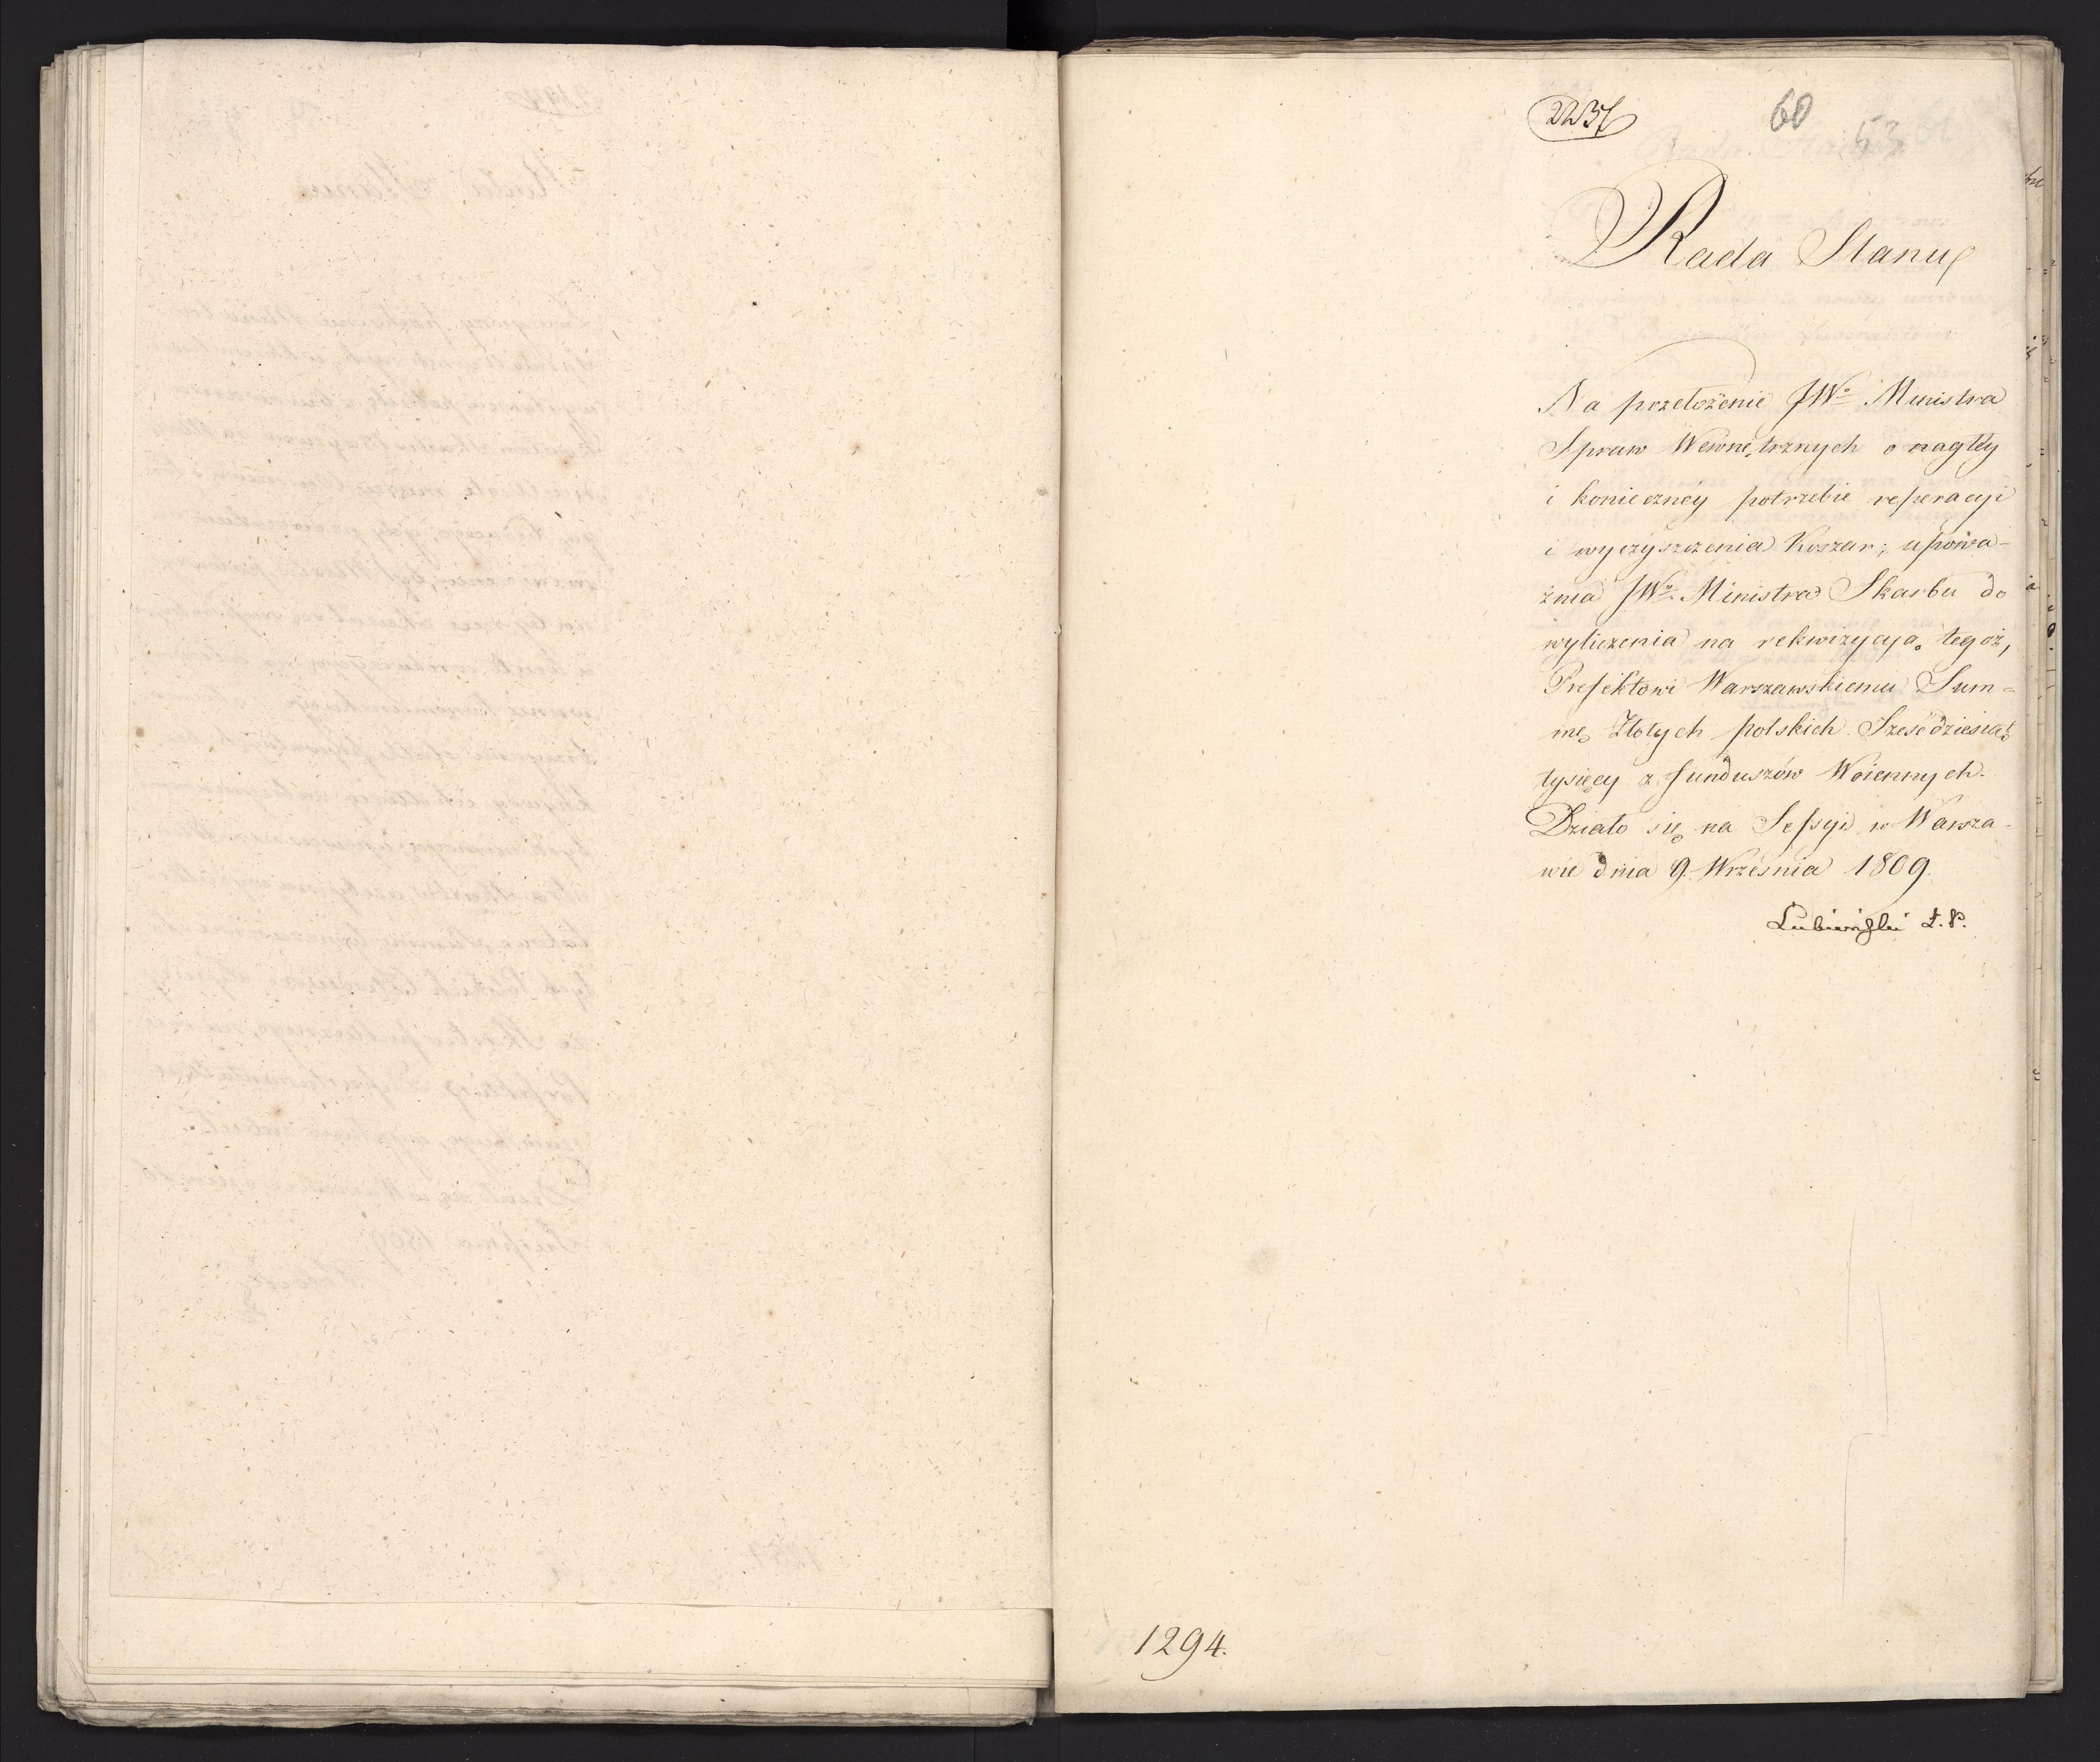 2237
60
53
Rada Stanu
Na przełożenie JWº Ministra
Spraw Wewnętrznych o nagłéy
i koniecznéy potrzebie reperacyi
i wyczyszczenia Koszar; upowa-
żnia JWº Ministra Skarbu do
wyliczenia na rekwizycyą tegoż,
Prefektowi Warszawskiemu Sum-
mę Złotych polskich Sześćdziesiąt
tysięcy z funduszów Woiennych.
Działo się na Sessyi w Warsza-
wie dnia 9. Września 1809.
1294.